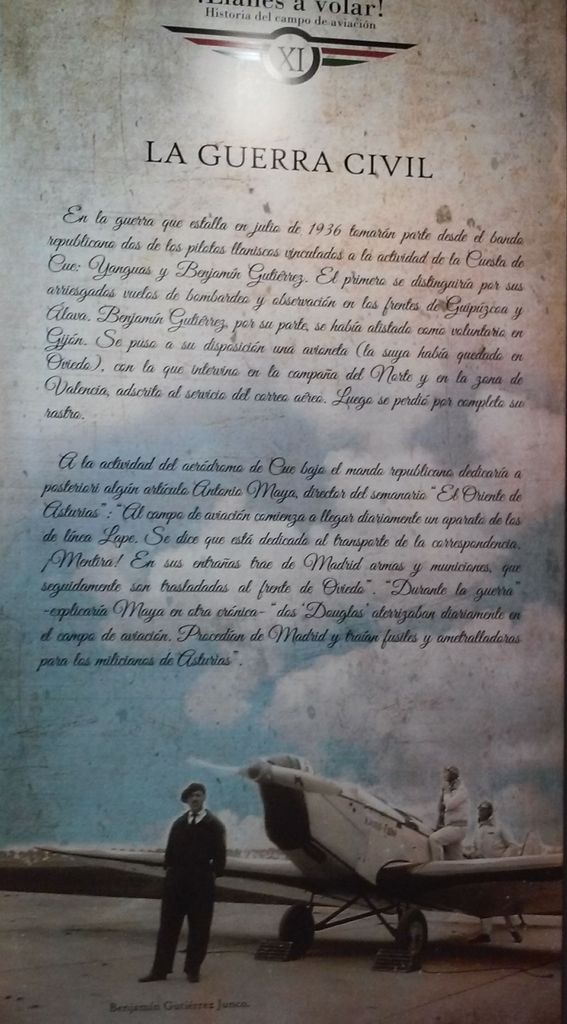 ¡Llanes a volar!
Historia del campo de aviación
XI
LA GUERRA CIVIL
En la guerra que estalla en julio de 1936 tomarán parte desde el bando
republicano dos de los pilotos llaniscos vinculados a la actividad de la Cuesta de
Cue: Yanguas y Benjamín Gutiérrez. El primero se distinguiría por sus
arriesgados vuelos de bombardeo y observación en los frentes de Guipúzcoa y
Álava. Benjamín Gutiérrez, por su parte, se había alistado como voluntario en
Gijón. Se puso a su disposición una avioneta (la suya había quedado en
Oviedo), con la que intervino en la campaña del Norte y en la zona de
Valencia, adscrito al servicio del correo aéreo. Luego se perdió por completo su
rastro.
A la actividad del aeródromo de Cue bajo el mando republicano dedicaría a
posteriori algún artículo Antonio Maya, director del semanario "El Oriente de
Asturias": "Al campo de aviación comienza a llegar diariamente un aparato de los
de línea Lape. Se dice que está dedicado al transporte de la correspondencia.
¡Mentira! En sus entrañas trae de Madrid armas y municiones, que
seguidamente son trasladadas al frente de Oviedo". "Durante la guerra"
-explicaría Maya en otra crónica- "dos 'Douglas' aterrizaban diariamente en
el campo de aviación. Procedían de Madrid y traían fusiles y ametralladoras
para los milicianos de Asturias".
Benjamín Gutiérrez Junco.